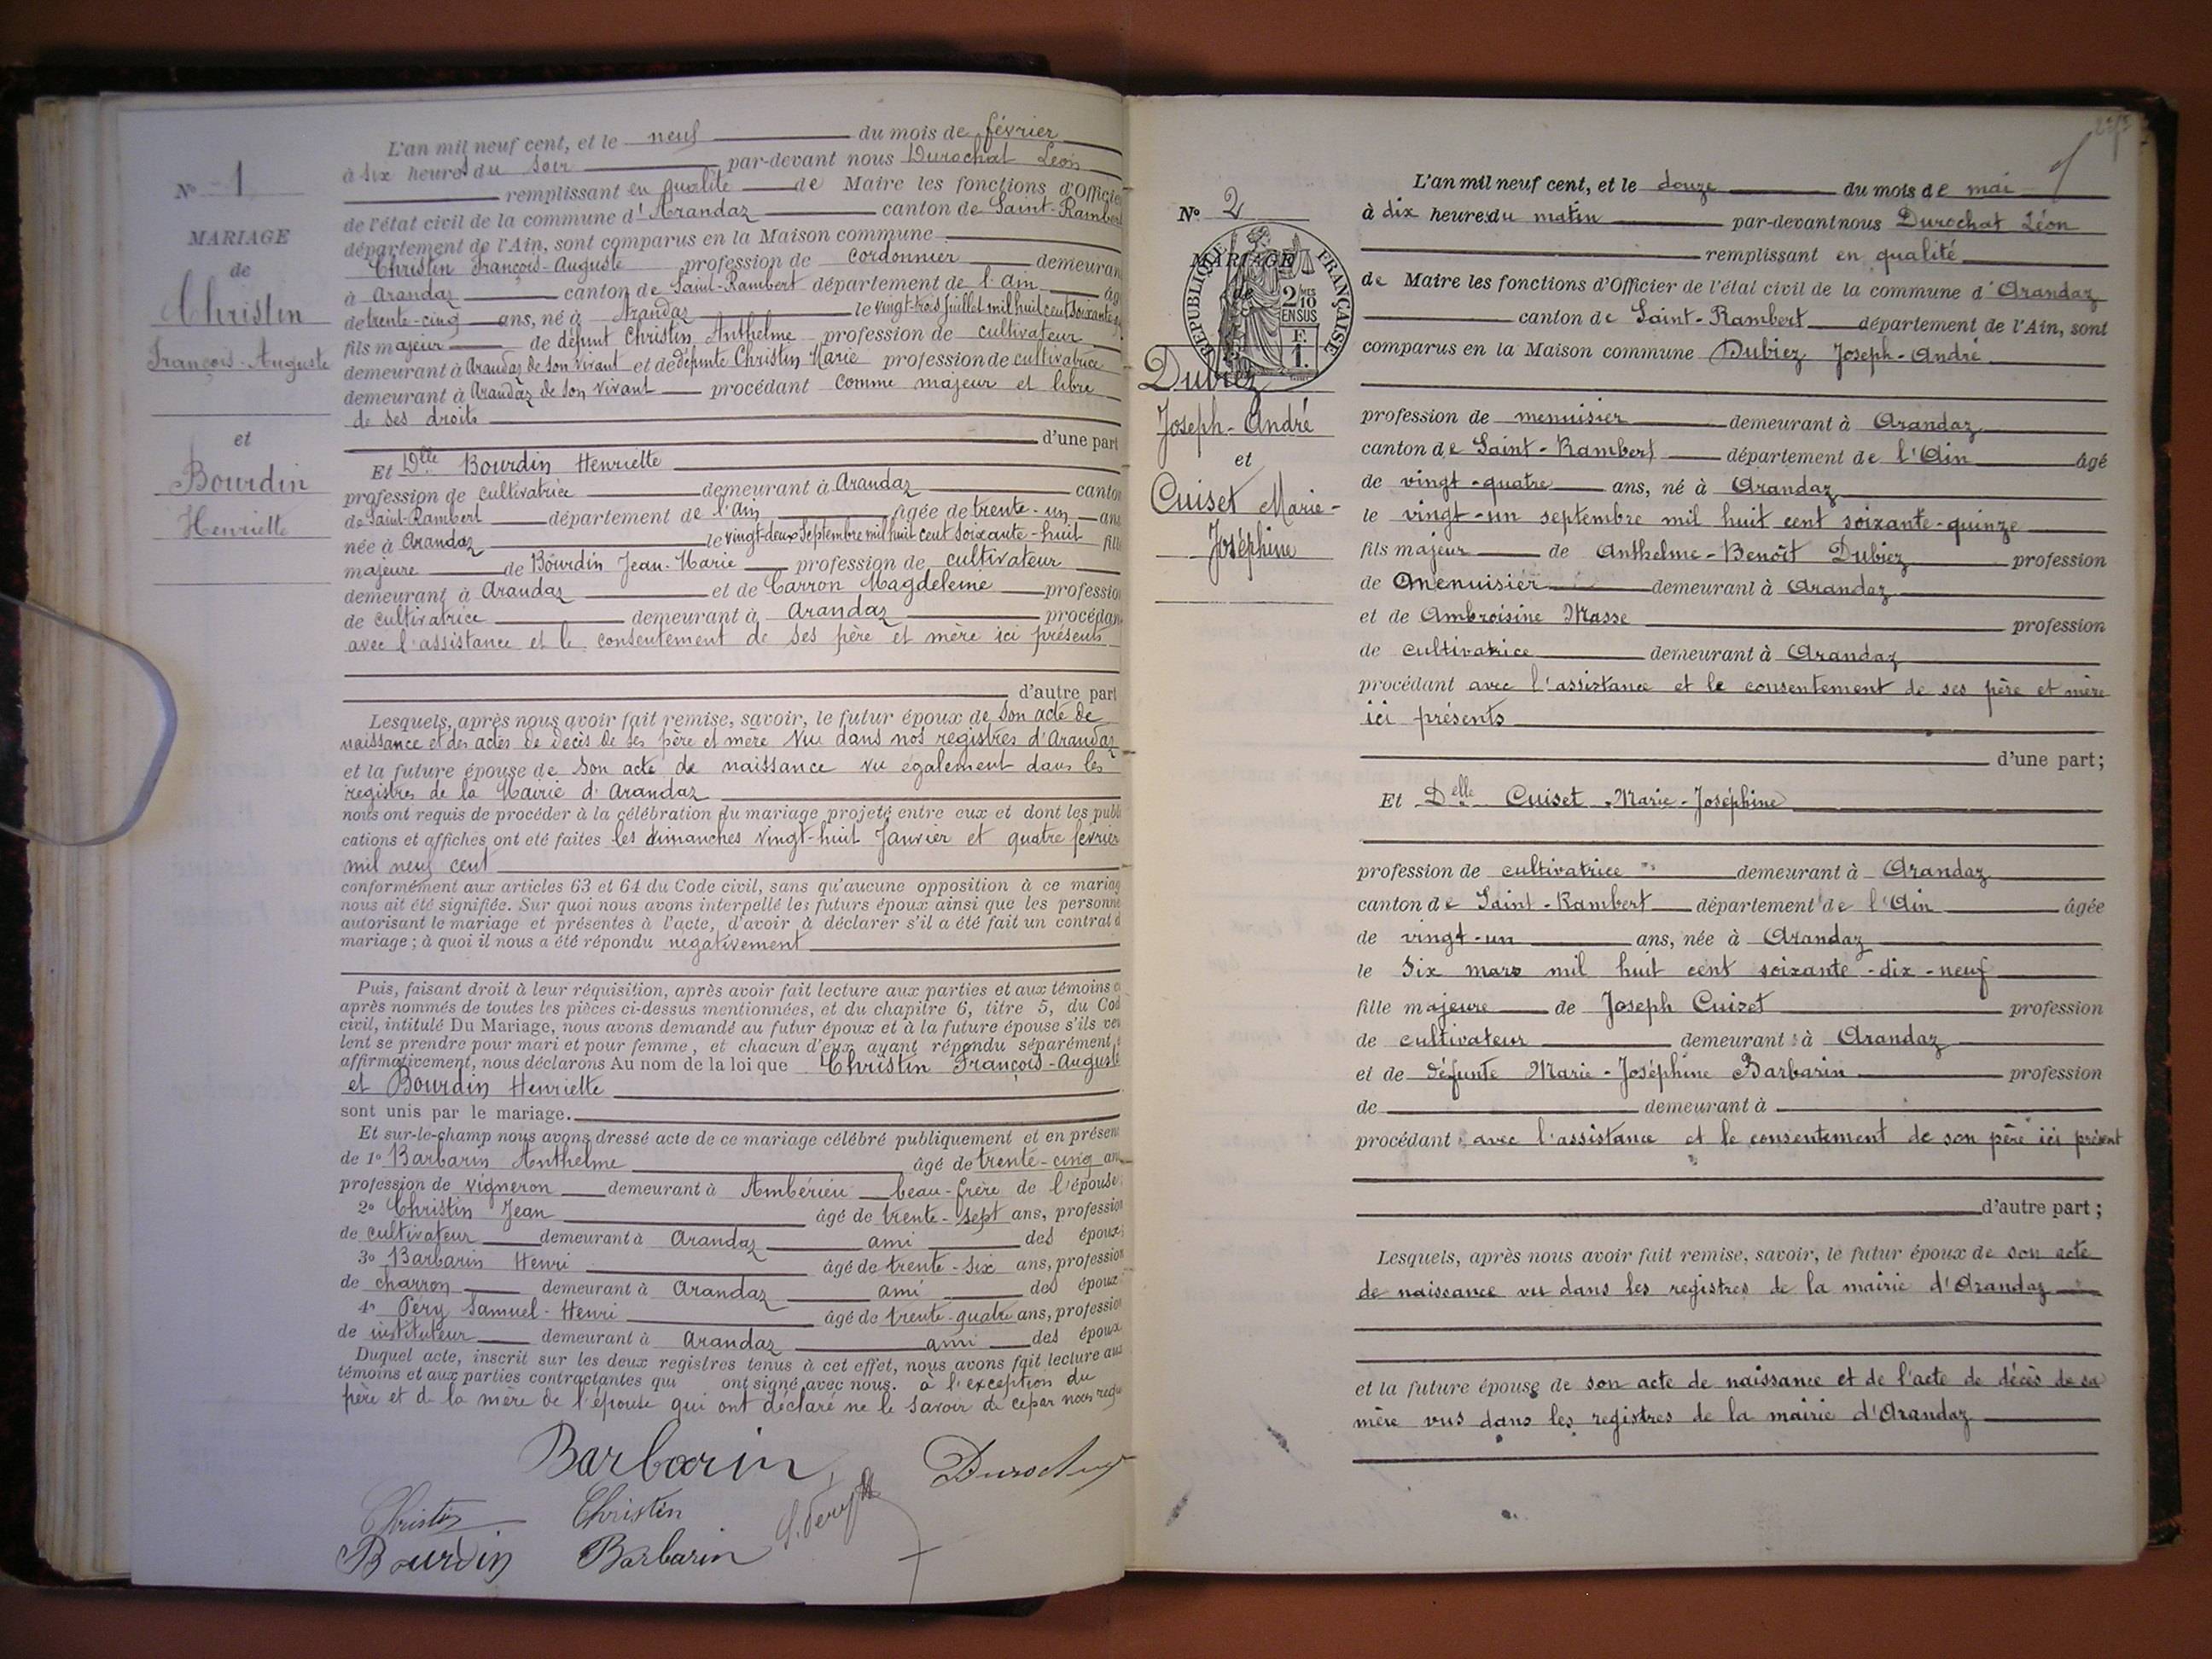 N° 1
MARIAGE
de
Christin
François-Auguste
et
Bourdin
Henriette
L'an mil neuf cent, et le neuf du mois de février
à six heures du soir par-devant nous Durochat Léon
remplissant en qualité de Maire les fonctions d'Officier
de l'état civil de la commune d'Arandaz canton de Saint-Rambert
département de l'Ain, sont comparus en la Maison commune
Christin François-Auguste profession de cordonnier demeuran
à Arandaz canton de Saint-Rambert département de l'Ain âg
de trente-cinq ans, né à Arandaz le vingt-trois juillet mil huit cent soixante
fils majeur de défunt Christin Anthelme profession de cultivateur
demeurant à Arandaz de son vivant et de défunte Christin Marie profession de cultivatrice
demeurant à Arandaz de son vivant procédant comme majeur et libre
de ses droits
d'une part
Et Dlle Bourdin Henriette
profession de cultivatrice demeurant à Arandaz canton
de Saint-Rambert département de l'Ain âgée de trente-un ans
née à Arandaz le vingt-deux Septembre mil huit cent soixante-huit fille
majeure de Bourdin Jean-Marie profession de cultivateur
demeurant à Arandaz et de Carron Magdeleine profession
de cultivatrice demeurant à Arandaz procédan
avec l'assistance et le consentement de ses père et mère ici présents
d'autre part
Lesquels, après nous avoir fait remise, savoir, le futur époux de son acte de
naissance et des actes de décès de ses père et mère vu dans nos registres d'Arandaz
et la future épouse de son acte de naissance vu également dans les
registres de la Mairie d'Arandaz
nous ont requis de procéder à la célébration du mariage projeté entre eux et dont les publi
cations et affiches ont été faites les dimanches vingt-huit Janvier et quatre février
mil neuf cent
conformément aux articles 63 et 64 du Code civil, sans qu'aucune opposition à ce mariag
nous ait été signifiée. Sur quoi nous avons interpellé les futurs époux ainsi que les personne
autorisant le mariage et présentes à l'acte, d'avoir à déclarer s'il a été fait un contrat d
mariage ; à quoi il nous a été répondu négativement
Puis, faisant droit à leur réquisition, après avoir fait lecture aux parties et aux témoins c
après nommés de toutes les pièces ci-dessus mentionnées, et du chapitre 6, titre 5, du Cod
civil, intitulé Du Mariage, nous avons demandé au futur époux et à la future épouse s'ils veu
lent se prendre pour mari et pour femme, et chacun d'eux ayant répondu séparément
affirmativement, nous déclarons Au nom de la loi que Christin François-Auguste
et Bourdin Henriette
sont unis par le mariage.
Et sur-le-champ nous avons dressé acte de ce mariage célébré publiquement et en présen
de 1° Barbarin Anthelme âgé de trente-cinq ans
profession de vigneron demeurant à Ambérieu beau-frère de l'épouse
2° Christin Jean âgé de trente-sept ans, profession
de cultivateur demeurant à Arandaz ami des époux
3° Barbarin Henri âgé de trente-six ans, profession
de charron demeurant à Arandaz ami des époux
4° Péry Samuel-Henri âgé de trente-quatre ans, profession
de instituteur demeurant à Arandaz ami des époux
Duquel acte, inscrit sur les deux registres tenus à cet effet, nous avons fait lecture aux
témoins et aux parties contractantes qui ont signé avec nous. à l'exception du
père et de la mère de l'épouse qui ont déclaré ne le savoir de ce par nous requ
Barbarin Durochat
Christin Christin S. Péry
Bourdin Barbarin
N° 2
MARIAGE
de
RÉPUBLIQUE FRANÇAISE
2/10 MES
EN SUS
F.
1.
Dubiez
Joseph-André
et
Cuiset Marie-
Joséphine
L'an mil neuf cent, et le douze du mois de mai
à dix heures du matin par-devant nous Durochat Léon
remplissant en qualité
de Maire les fonctions d'Officier de l'état civil de la commune d'Arandaz
canton de Saint-Rambert département de l'Ain, sont
comparus en la Maison commune Dubiez Joseph-André
profession de menuisier demeurant à Arandaz
canton de Saint-Rambert département de l'Ain âgé
de vingt-quatre ans, né à Arandaz
le vingt-un septembre mil huit cent soixante-quinze
fils majeur de Anthelme-Benoît Dubiez profession
de menuisier demeurant à Arandaz
et de Ambroisine Masse profession
de cultivatrice demeurant à Arandaz
procédant avec l'assistance et le consentement de ses père et mère
ici présents
d'une part;
Et Delle Cuiset Marie-Joséphine
profession de cultivatrice demeurant à Arandaz
canton de Saint-Rambert département de l'Ain âgée
de vingt-un ans, née à Arandaz
le six mars mil huit cent soixante-dix-neuf
fille majeure de Joseph Cuiset profession
de cultivateur demeurant à Arandaz
et de défunte Marie-Joséphine Barbarin profession
de demeurant à
procédant avec l'assistance et le consentement de son père ici présent
d'autre part ;
Lesquels, après nous avoir fait remise, savoir, le futur époux de son acte
de naissance vu dans les registres de la mairie d'Arandaz
et la future épouse de son acte de naissance et de l'acte de décès de sa
mère vus dans les registres de la mairie d'Arandaz